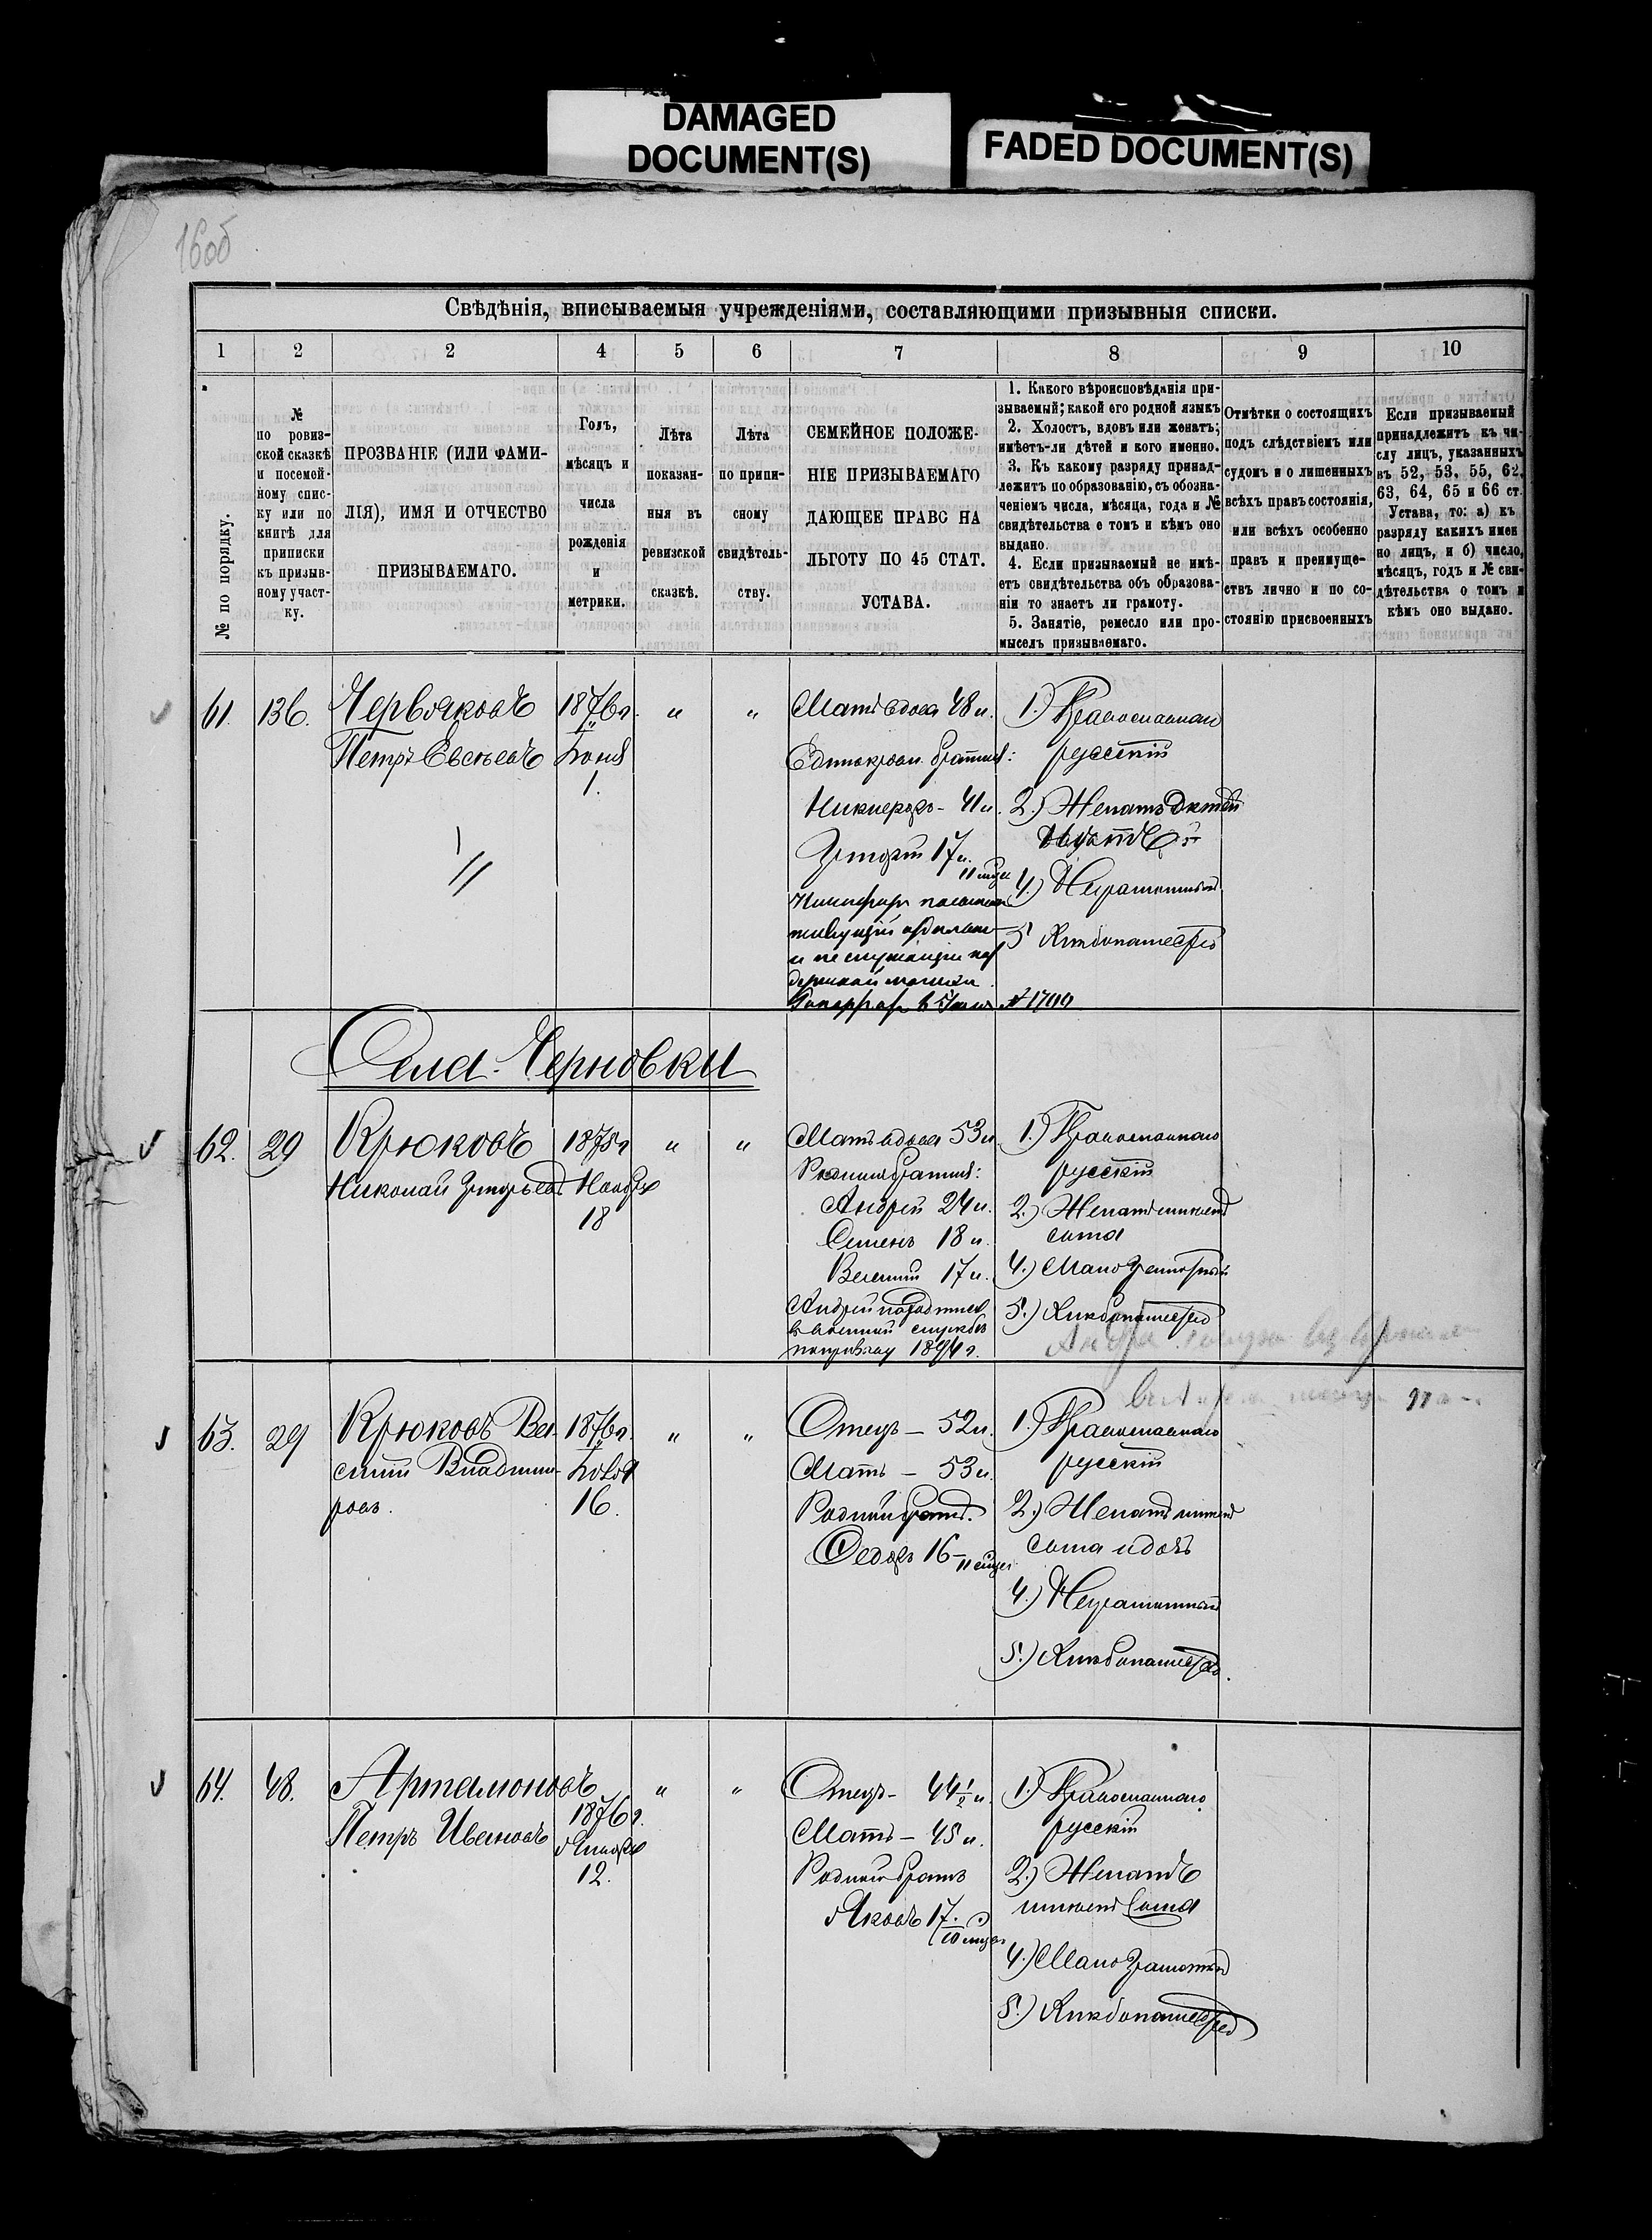 DAMAGED
DOCUMENT(S)
FADED DOCUMENT(S)
16об
Свѣдѣнія, вписываемыя учрежденіями, составляющими призывныя списки.
1 2 2 4 5 6 7 8 9 10
№ по порядку.
№
по ровиз-
ской сказкѣ
и посемей-
ному спис-
ку или по
книгѣ для
приписки
къ призыв-
ному участ-
ку.
ПРОЗВАНІЕ (ИЛИ ФАМИ-
ЛІЯ), ИМЯ И ОТЧЕСТВО
ПРИЗЫВАЕМАГО.
Годъ,
мѣсяцъ и
числа
рожденія
и
метрики.
Лѣта
показан-
ныя въ
ревизской
сказкѣ.
Лѣта
по припи-
сному
свидѣтель-
ству.
СЕМЕЙНОЕ ПОЛОЖЕ-
НІЕ ПРИЗЫВАЕМАГО
ДАЮЩЕЕ ПРАВО НА
ЛЬГОТУ ПО 45 СТАТ.
УСТАВА.
1. Какого вѣроисповѣданія при-
зываемый; какой его родной языкъ
2. Холостъ, вдовъ или женатъ;
имѣетъ-ли дѣтей и кого именно.
3. Къ какому разряду принад-
лежитъ по образованію, съ обозна-
ченіемъ числа, мѣсяца, года и №
свидѣтельства о томъ и кѣмъ оно
выдано.
4. Если призываемый не имѣ-
етъ свидѣтельства объ образова-
ніи то знаетъ ли грамоту.
5. Занятіе, ремесло или про-
мыселъ призываемаго.
Отмѣтки о состоящихъ
подъ слѣдствіемъ или
судомъ и о лишенныхъ
всѣхъ правъ состоянія,
или всѣхъ особенно
правъ и преимуще-
ствъ лично и по со-
стоянію присвоенныхъ
Если призываемый
принадлежитъ къ чи-
слу лицъ, указанныхъ
въ 52, 53, 55, 62,
63, 64, 65 и 66 ст.
Устава, то: а) къ
разряду какихъ имен
но лицъ, и б) число,
мѣсяцъ, годъ и № сви-
дѣтельства о томъ и
кѣмъ оно выдано.
61. 136. Червяковъ
Петръ Евсѣевъ
1876г.
Іюня
1.
" "
Мать вдова 48 л.
Единокровн. братья:
Никифоръ - 41 л.
Григорій 17 л.
11 мѣс
Никифоръ
живущій отдѣльно
№ 1799
1.) Православнаго
русскій
2.) Женатъ дѣтей
4.) Неграмотный
5 Хлѣбопашество
Села Черновки
62. 29 Крюковъ
Николай Григорьевъ
1875г
Ноября
18
" "
Мать вдова 53 л
Родные братья:
Андрей 24 л.
Семенъ 18 л.
Василій 17 л.
Андрей находится
въ военной службѣ
по призыву 1894 г.
1.) Православнаго
русскій
2.) Женатъ имѣетъ
сына
4.) Малограмотный
5.) Хлѣбопашество
63. 29 Крюковъ Ва-
силій Владими-
ровъ.
1876г.
Іюля
16.
" "
Отецъ - 52 л.
Мать - 53 л.
Родной братъ.
Ѳедоръ 16 -
11 мѣс
1.) Православнаго
русскій
2.) Женатъ имѣетъ
сына и дочь
4.) Неграмотный
5.) Хлѣбопашество.
64. 48. Артамоновъ
Петръ Ивановъ
1876г.
Января
12.
" "
Отецъ - 44 1/2 л.
Мать - 45 л.
Родной братъ
Яковъ 17.
10 мѣс
1.) Православнаго
русскій
2.) Женатъ
имѣетъ сына
4.) Малограмотный
5.) Хлѣбопашество